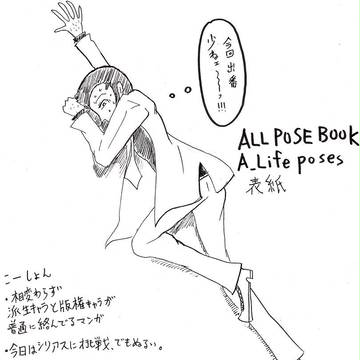 今回出番
少ねェ〜〜ッ!!!
ALL POSE BOOK
A_Life poses
表紙
こーしょん
・相変わらず
派生キャラと版権キャラが
普通に絡んでるマンガ
・今日はシリアスに挑戦、でもぬるい。